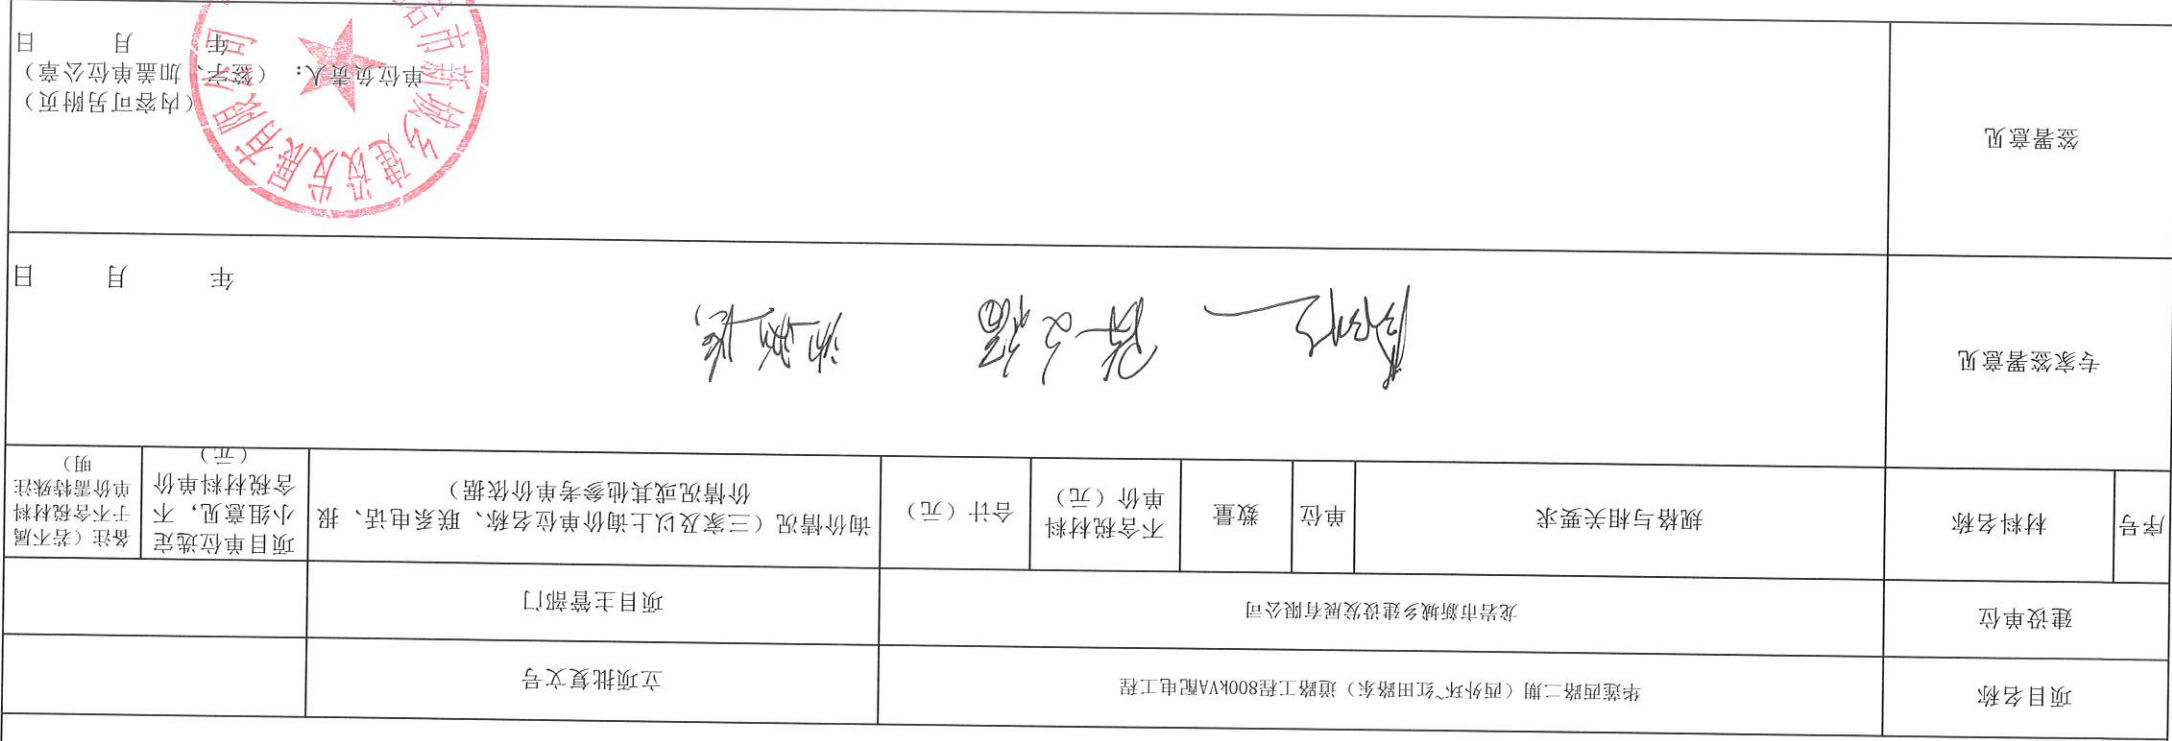 项目名称
华莲西路二期（西外环~红田路东）道路工程800kVA配电工程
立项批复文号
建设单位
龙岩市新城乡建设发展有限公司
项目主管部门
序号
材料名称
规格与相关要求
单位
数量
不含税材料
单价（元）
合计（元）
询价情况（三家及以上询价单位名称、联系电话、报
价情况或其他参考单价依据）
项目单位选定
小组意见，不
含税材料单价
（元）
备注（若不属
于不含税材料
单价需特殊注
明）
专家签署意见
年 月 日
签署意见
（内容可另附页）
单位负责人：（签字、加盖单位公章）
年 月 日
岩市新城乡建设发展有限公司